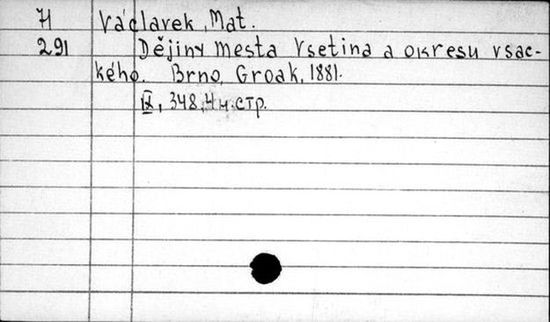 Я Václavek, Mat.
291 Dějiny mesta Vsetina a okresu vsac-
kého. Brno, Groak, 1881.
IX, 348, 4 н. стр.